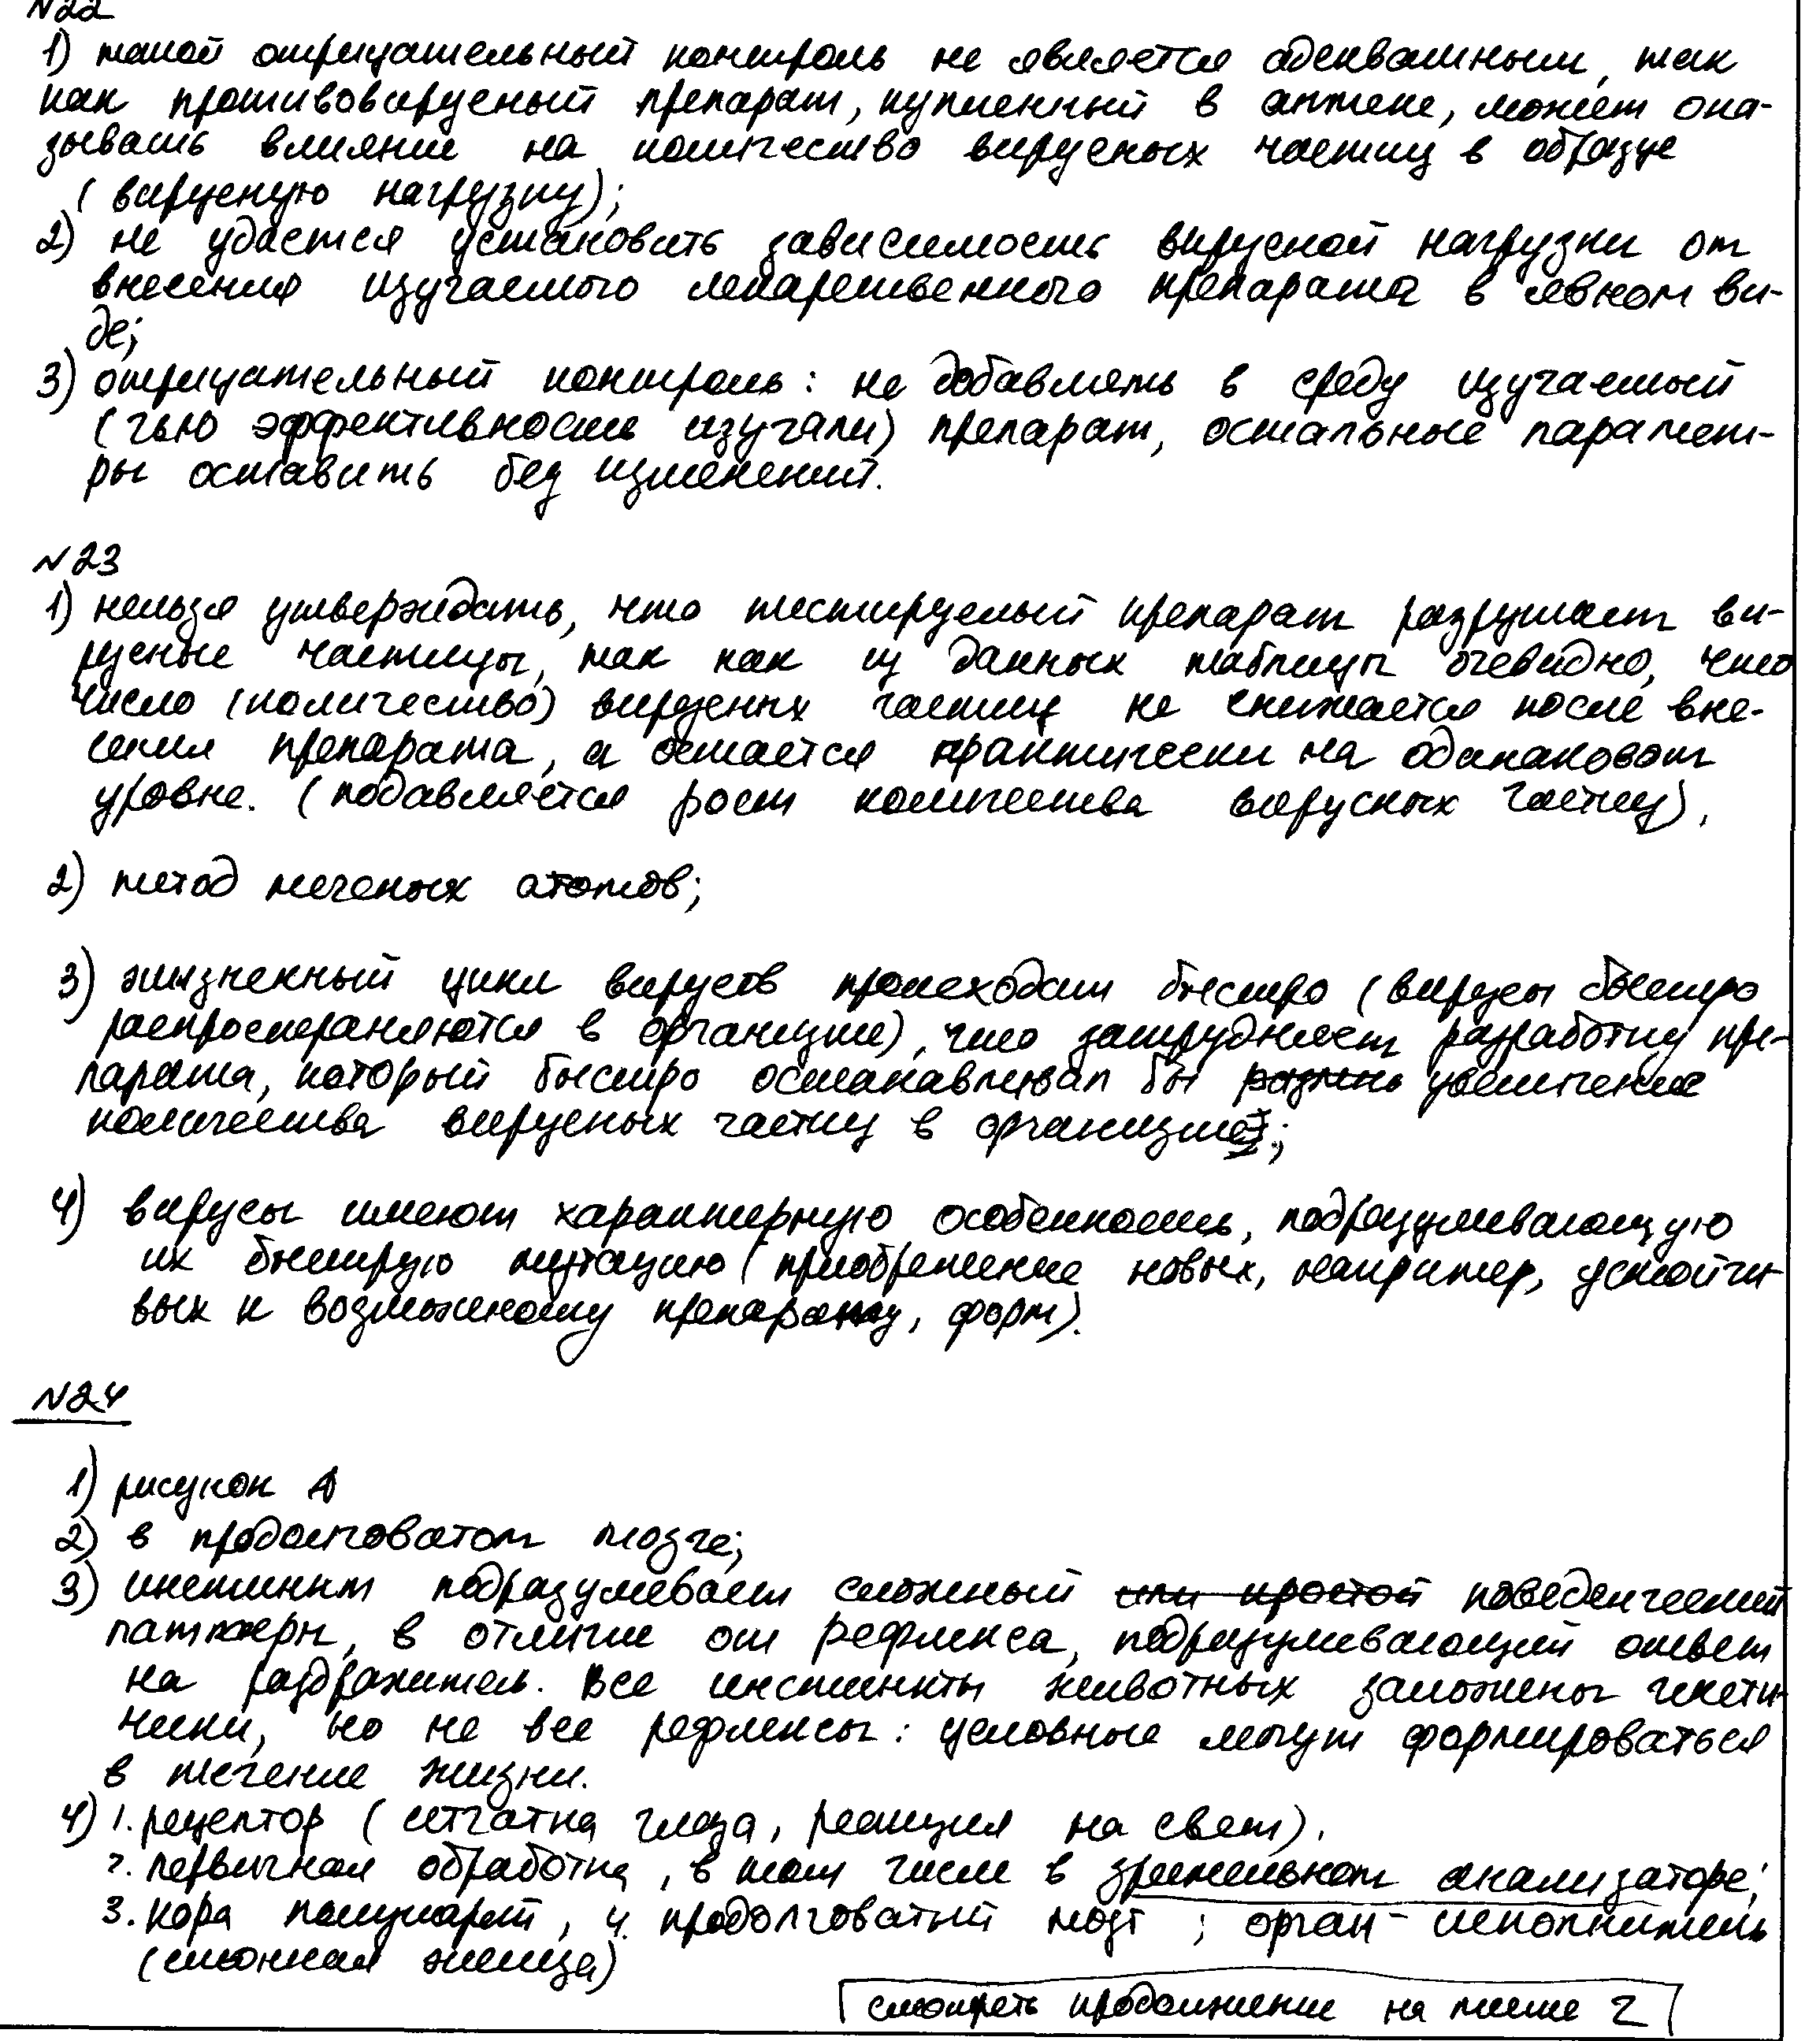 №22
1) такой отрицательный контроль не является адекватным, так
как противовирусный препарат, купленный в аптеке, может ока-
зывать влияние на количество вирусных частиц в образце
(вирусную нагрузку);
2) не удастся установить зависимость вирусной нагрузки от
внесения изучаемого лекарственного препарата в явном ви-
де;
3) отрицательный контроль: не добавлять в среду изучаемый
(чью эффективность изучали) препарат, остальные парамет-
ры оставить без изменений.
№23
1) нельзя утверждать, что тестируемый препарат разрушает ви-
русные частицы, так как из данных таблицы очевидно, что
число (количество) вирусных частиц не снижается после вне-
сения препарата, а остается практически на одинаковом
уровне. (подавляется рост количества вирусных частиц),
2) метод меченых атомов;
3) жизненный цикл вирусов происходит быстро (вирусы быстро
распространяются в организме), что затрудняет разработку пре-
парата, который быстро останавливал бы увеличение
количества вирусных частиц в организме;
4) вирусы имеют характерную особенность, подразумевающую
их быструю мутацию (приобретение новых, например, устойчи-
вых к возможному препарату, форм).
№24
1) рисунок А
2) в продолговатом мозге;
3) инстинкт подразумевает сложный или простой поведенческий
паттерн, в отличие от рефлекса, подразумевающий ответ
на раздражитель. Все инстинкты животных заложены генети-
чески, но не все рефлексы: условные могут формироваться
в течение жизни.
4) 1. рецептор (сетчатка глаза, реакция на свет).
2. первичная обработка, в том числе в зрительном анализаторе;
3. кора полушарий, 4. продолговатый мозг; орган-исполнитель
(слюнная железа)
смотреть продолжение на листе 2